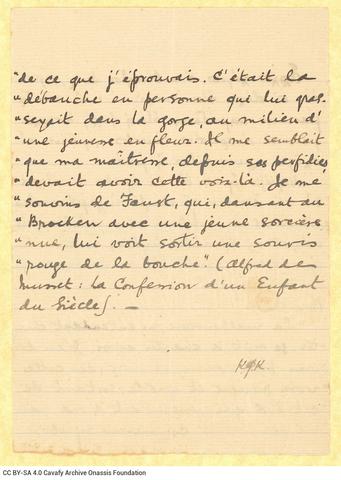 "de ce que j'éprouvais. C'était la
"débauche en personne qui lui gras-
"seyait dans la gorge, au milieu d'
"une jeunesse en fleur. Il me semblait
"que ma maîtresse, depuis ses perfidies,
"devait avoir cette voix-là. Je me
"souvins de Faust, qui, dansant au
"Brocken avec une jeune sorcière
"nue, lui voit sortir une souris
"rouge de la bouche". (Alfred de
Musset: La Confession d'un Enfant
du Siècle). —
CC BY-SA 4.0 Cavafy Archive Onassis Foundation